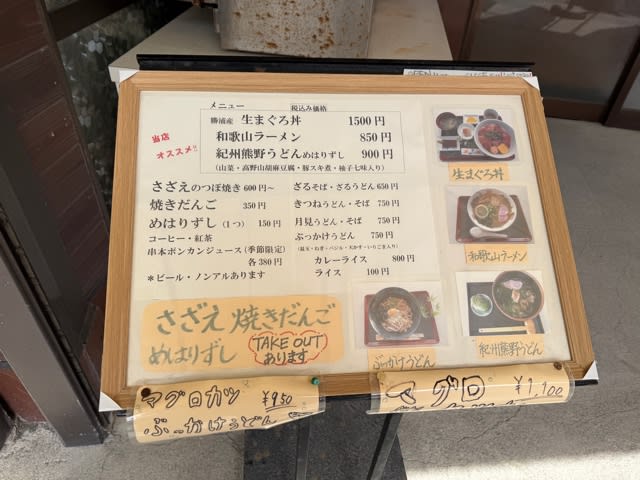 OPEN
メニュー 税込み価格
当店
オススメ!!
勝浦産 生まぐろ丼 1500円
和歌山ラーメン 850円
紀州熊野うどん めはりずし 900円
(山菜・高野山胡麻豆腐・豚スキ煮・柚子七味入り)
さざえのつぼ焼き 600円~
焼きだんご 350円
めはりずし (1つ) 150円
コーヒー・紅茶
串本ポンカンジュース (季節限定)
各380円
*ビール・ノンアルあります
ざるそば・ざるうどん 650円
きつねうどん・そば 750円
月見うどん・そば 750円
ぶっかけうどん 750円
カレーライス 800円
ライス 100円
生まぐろ丼
和歌山ラーメン
紀州熊野うどん
ぶっかけうどん
さざえ 焼きだんご
めはりずし
TAKE OUT
あります
マグロカツ ¥950
ぶっかけうどん
マグロ ¥1,100